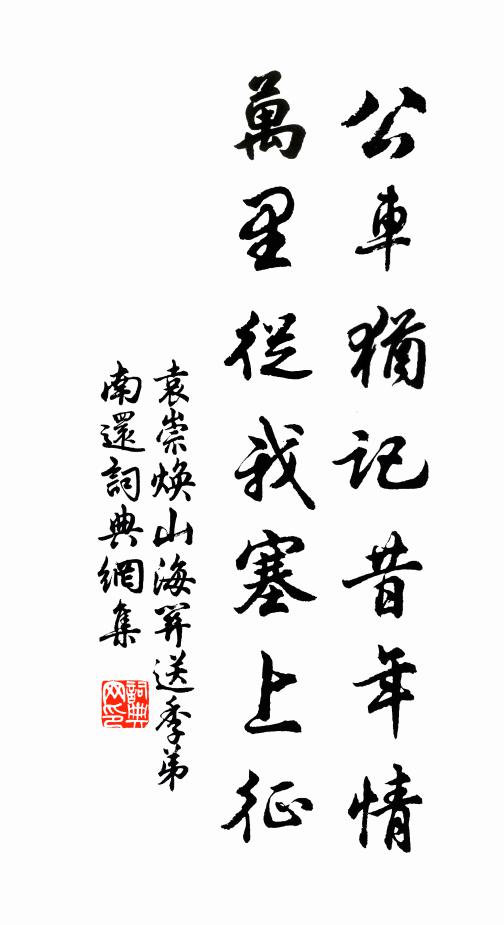 公車猶記昔年情
萬里從我塞上征
袁崇煥山海關送季弟
南還詞典網集
詞典
网印